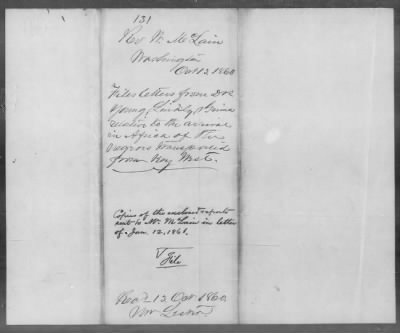 131
Rev W. McLain
Washington
Oct 12, 1860
Files letters from Drs
Young, Lindly, & Grima
relative to the arrival
in Africa of the
negroes transported
from Key West.
Copies of the enclosed reports
sent to Mr. McLain in letter
of Jan. 12, 1861.
File
Recd 12 Oct 1860